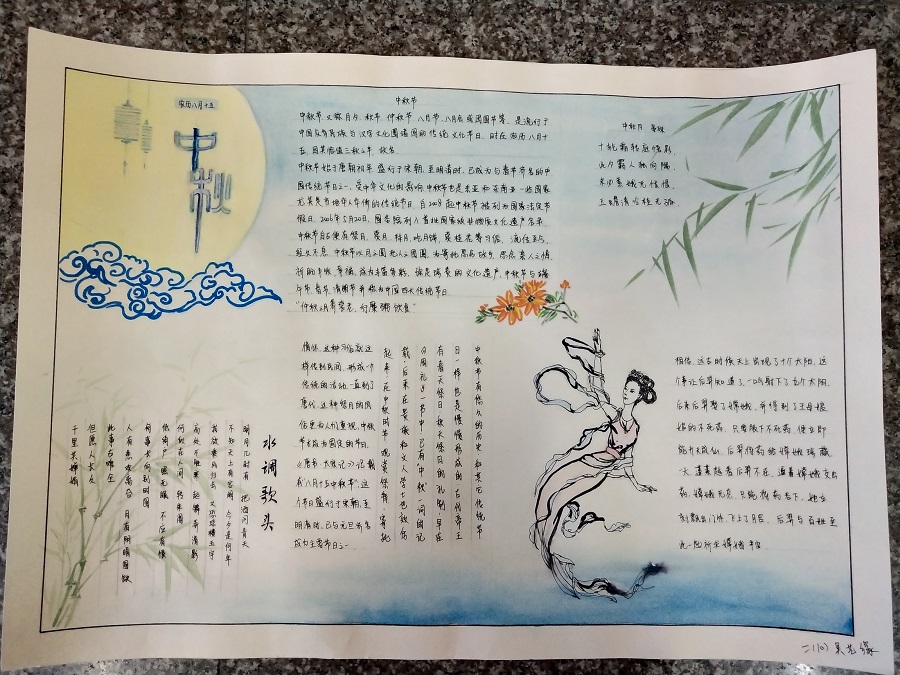 农历八月十五
中秋
中秋节
中秋节,又称月夕、秋节、仲秋节、八月节、八月会
中国众多民族与汉字文化圈诸国的传统文化节日,时在农历八月十
五,因其恰值三秋之半,故名
中秋节始于唐朝初年,盛行于宋朝,至明清时,已成为与春节齐名的中
国传统节日之一。受中华文化的影响,中秋节也是东亚和东南亚一些国家
尤其是当地华人华侨的传统节日。自2008起中秋节被列为国家法定节
假日。2006年5月20日,国务院列入首批国家级非物质文化遗产名录。
中秋节自古便有祭月、赏月、拜月、吃月饼、赏桂花等习俗,流传至今,
经久不息。中秋节以月之圆兆人之团圆,为寄托思念故乡,思念亲人之情
祈盼丰收、幸福,成为丰富多彩、弥足珍贵的文化遗产。中秋节与端
午节、春节、清明节并称为中国四大传统节日
中秋月
十轮霜
此夕
未必素娥无怅恨
玉蟾清冷桂花孤
中秋节有悠久的历史和其它传统节
日一样,也是慢慢形成的,古代帝王
有春天祭日,秋天祭月的礼制,早在
《周礼》一书中,已有“中秋”一词的记
载。后来贵族和文人学士也效仿
起来,在中秋时节,观赏祭拜,寄托
情怀,这种习俗就这
样传到民间,形成一个
传统的活动,一直到了
唐代,这种祭月的风
俗更为人们重视,中秋
节才成为固定的节日,
《唐书·太宗记》记载
有“八月十五中秋节”,这
个节日盛行于宋朝,至
明清时,已与元旦齐名
成为主要节日之一
相传,远古时候天上出现了十个太阳,这
个事让后羿知道了,一口气射下了九个太阳,
后来后羿娶了嫦娥,并得到了王母娘
娘的不死药,只要服下不死药,便立即
能升天成仙,后羿将药给嫦娥珍藏,
一天蓬蒙趁着后羿不在,逼着嫦娥交出
药,嫦娥无奈,只能将药吞下,她立
刻飘出门外,飞上了月宫,后羿与百姓
水调歌头
明月几时有 把酒问青天
不知天上宫阙 今夕是何年
我欲乘风归去 又恐琼楼玉宇
高处不胜寒 起舞弄清影
何似在人间 转朱阁
低绮户 照无眠 不应有恨
何事长向别时圆
人有悲欢离合 月有阴晴圆缺
此事古难全
但愿人长久
千里共婵娟
二(10) 吴艺缘